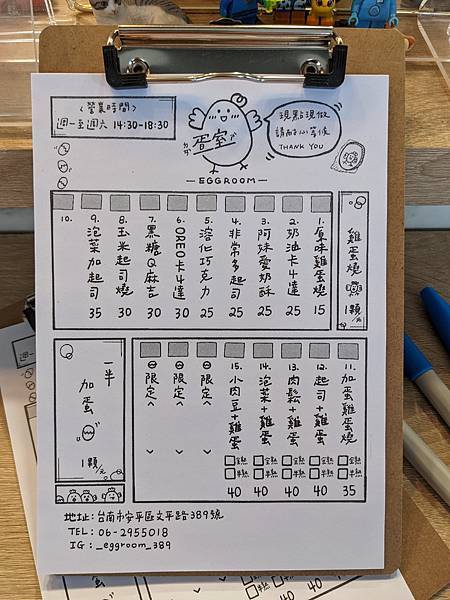 <營業時間>
週一至週六 14:30-18:30
蛋室
EGGROOM
現點現做
請耐心等候
THANK YOU
雞蛋燒
1顆/元
1. 原味雞蛋燒 15
2. 奶油卡士達 25
3. 阿妹愛奶酥 25
4. 非常多起司 25
5. 溶化巧克力 25
6. OREO卡士達 30
7. 黑糖Q麻吉 30
8. 玉米起司燒 30
9. 泡菜加起司 35
10.
11. 加蛋雞蛋燒 全熟 半熟 35
12. 起司+雞蛋 全熟 半熟 40
13. 肉鬆+雞蛋 全熟 半熟 40
14. 泡菜+雞蛋 全熟 半熟 40
15. 小肉豆+雞蛋 全熟 半熟 40
<限定>
<限定>
<限定>
一半
加蛋
1顆/元
地址:台南市安平區文平路389號
TEL: 06-2955018
IG: _eggroom_389